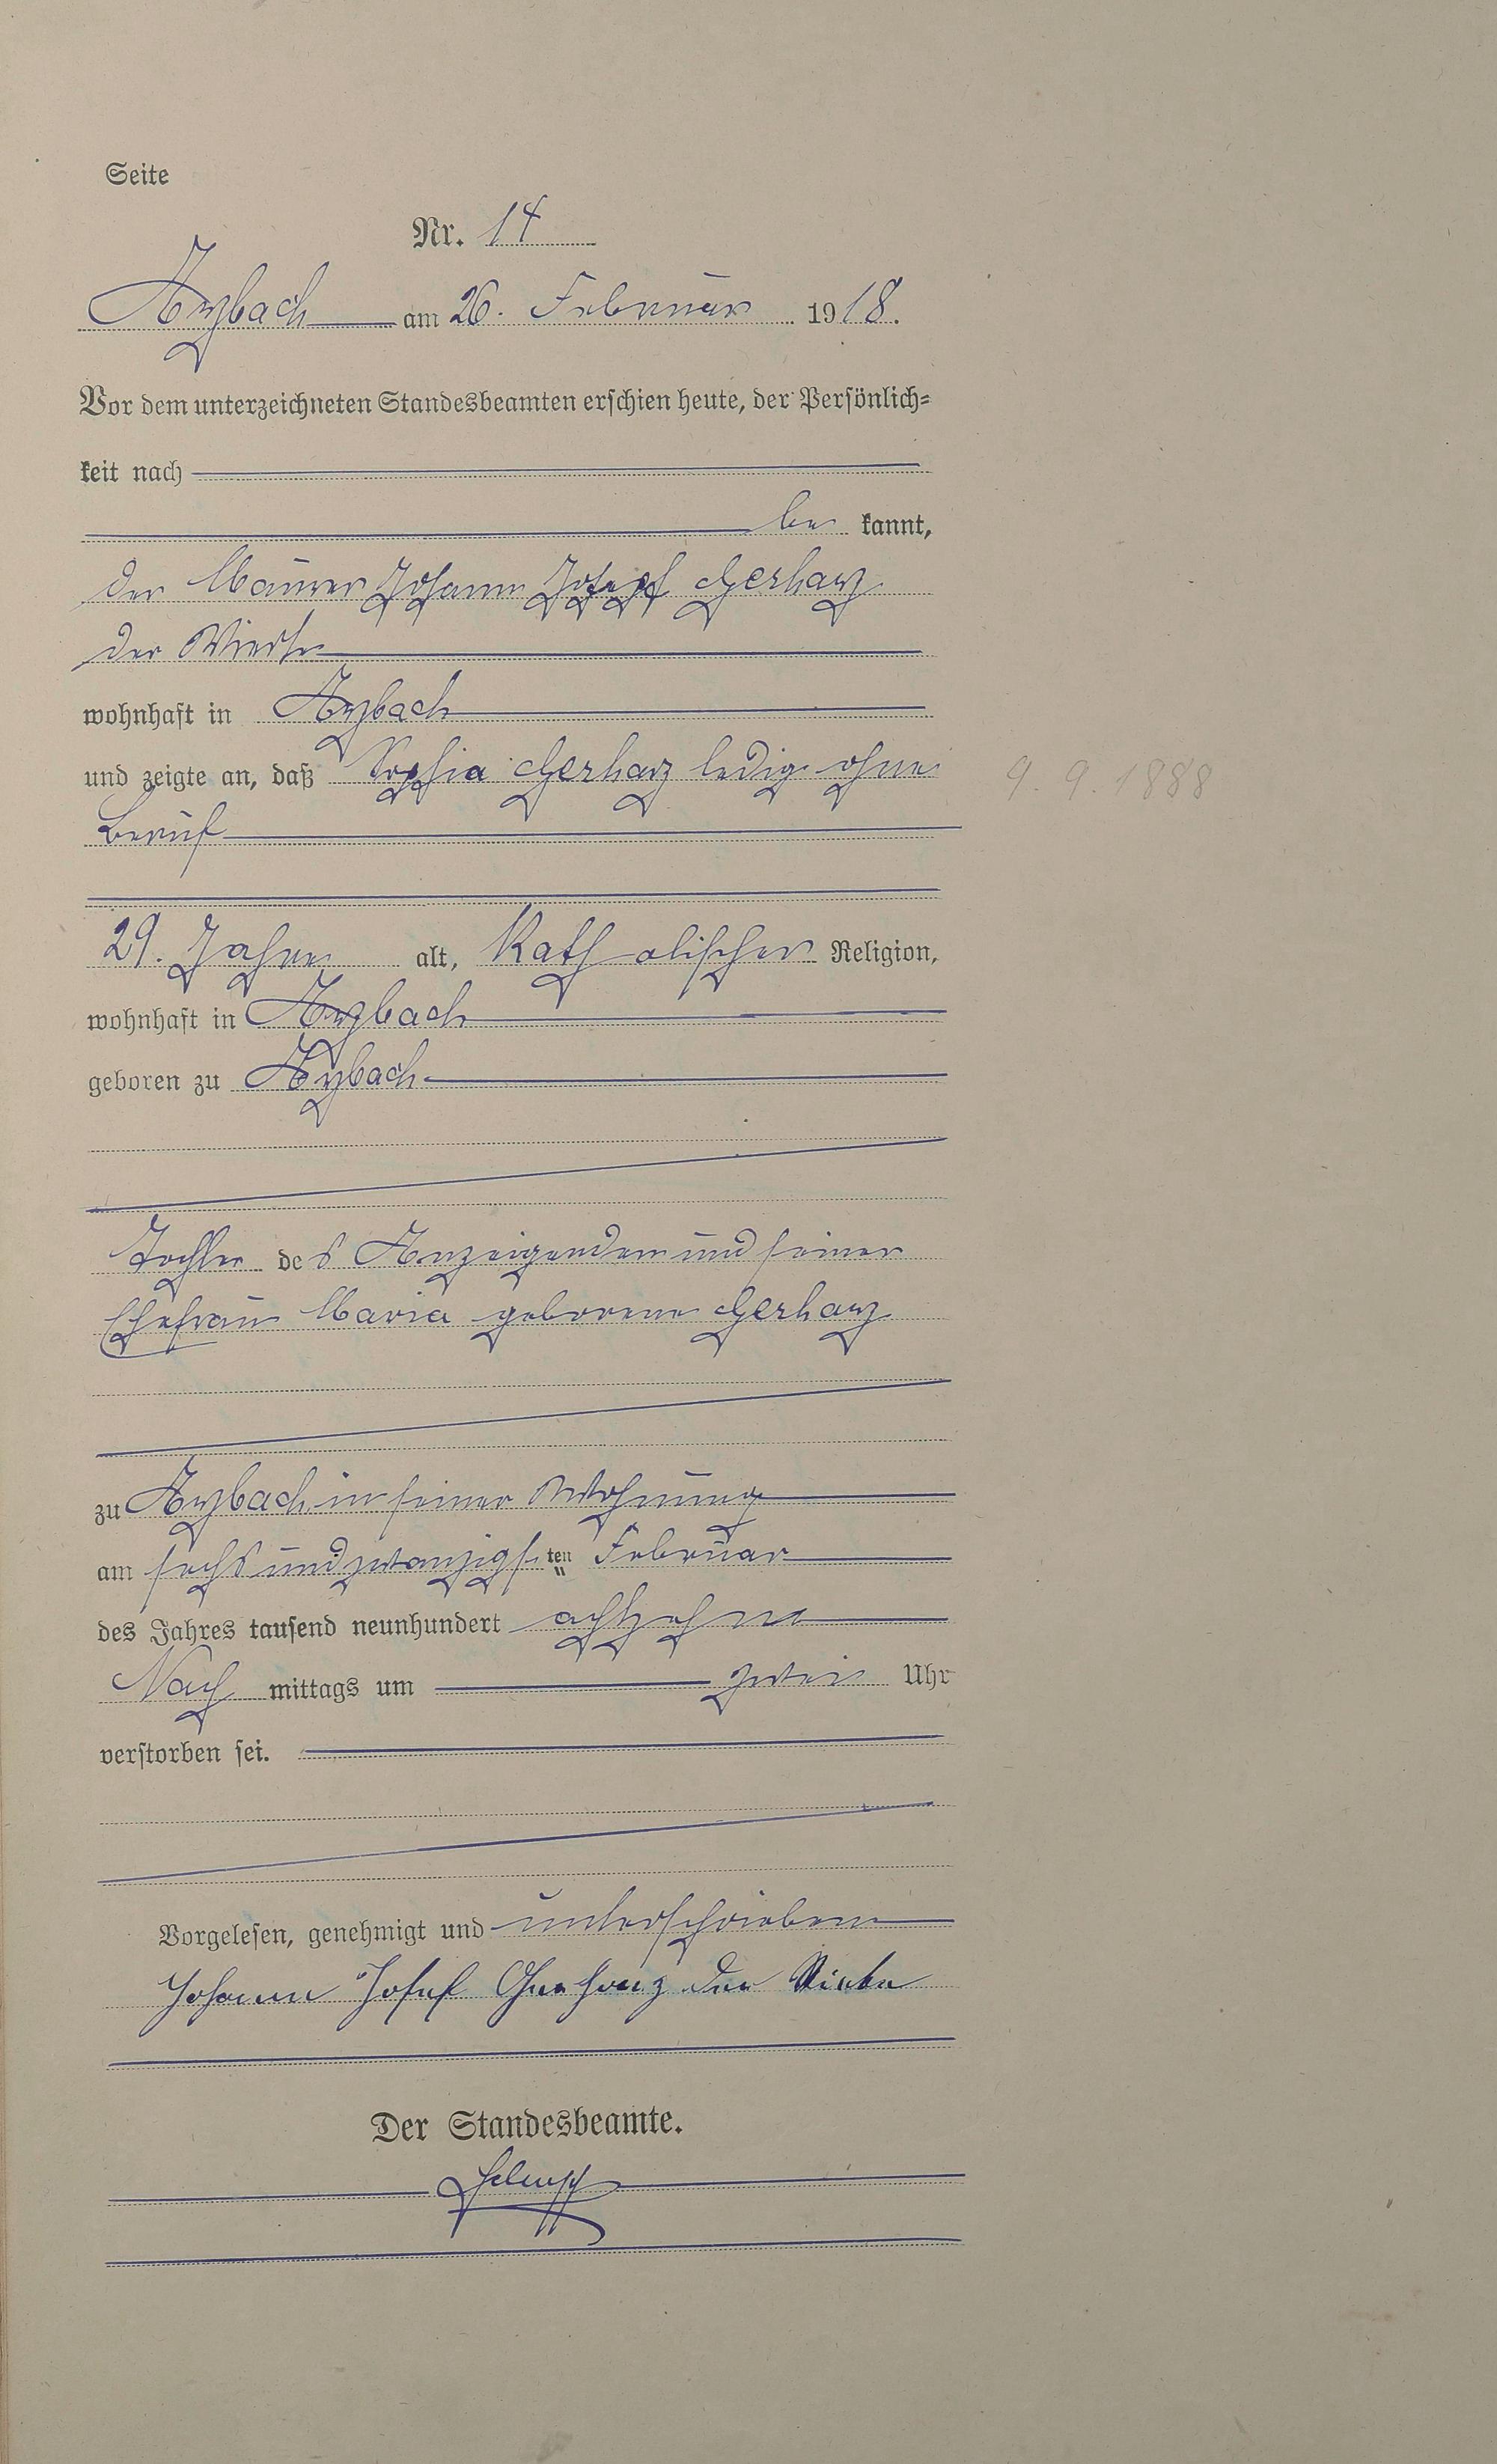 Seite
Nr. 14
Arzbach am 26. Februar 1918.
Vor dem unterzeichneten Standesbeamten erschien heute, der Persönlich=
keit nach
be kannt,
der Maurer Johann Josef Gerharz
der Vierte
wohnhaft in Arzbach
und zeigte an, daß Sophia Gerharz ledig ohne
9. 9. 1888
Beruf
29. Jahre alt, Katholischer Religion,
wohnhaft in Arzbach
geboren zu Arzbach
Tochter des Anzeigenden und seiner
Ehefrau Maria geborene Gerharz
zu Arzbach in seiner Wohnung
am sechsundzwanzigsten Februar
des Jahres tausend neunhundert achtzehn
Nach mittags um zwei Uhr
verstorben sei.
Vorgelesen, genehmigt und unterschrieben
Johann Josef Gerharz der Vierte
Der Standesbeamte.